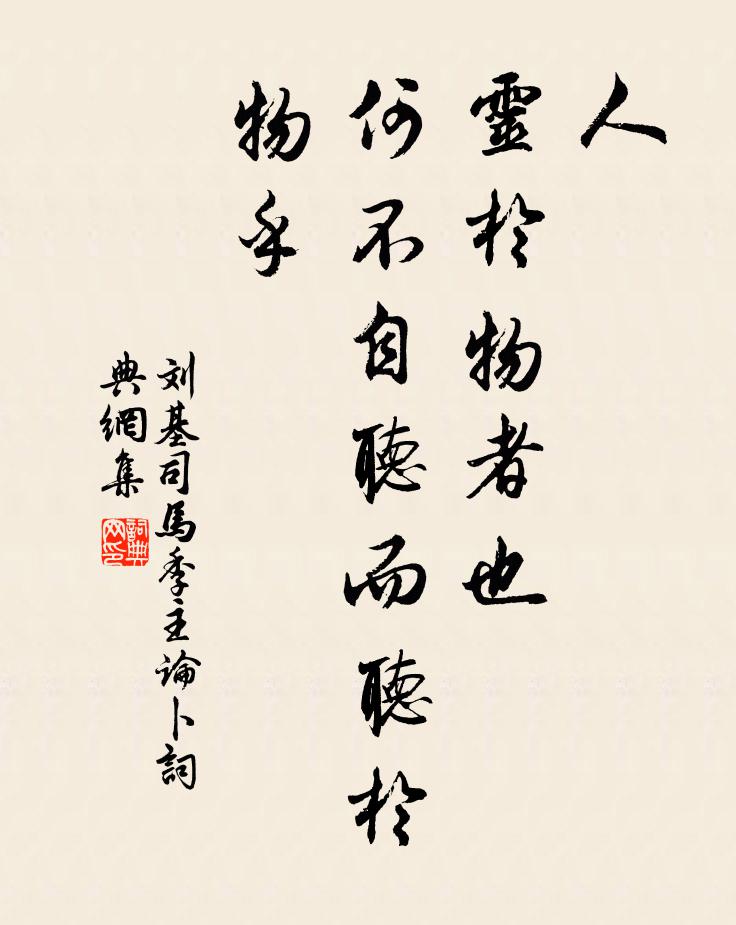 人
靈於物者也
何不自聽而聽於
物乎
刘基司馬季主論卜詞
典網集
詞典
网印